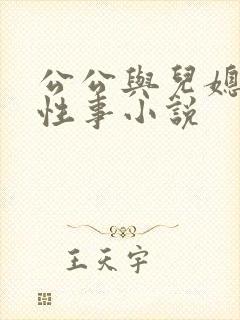 公公與兒媳
性事小說
王天宇